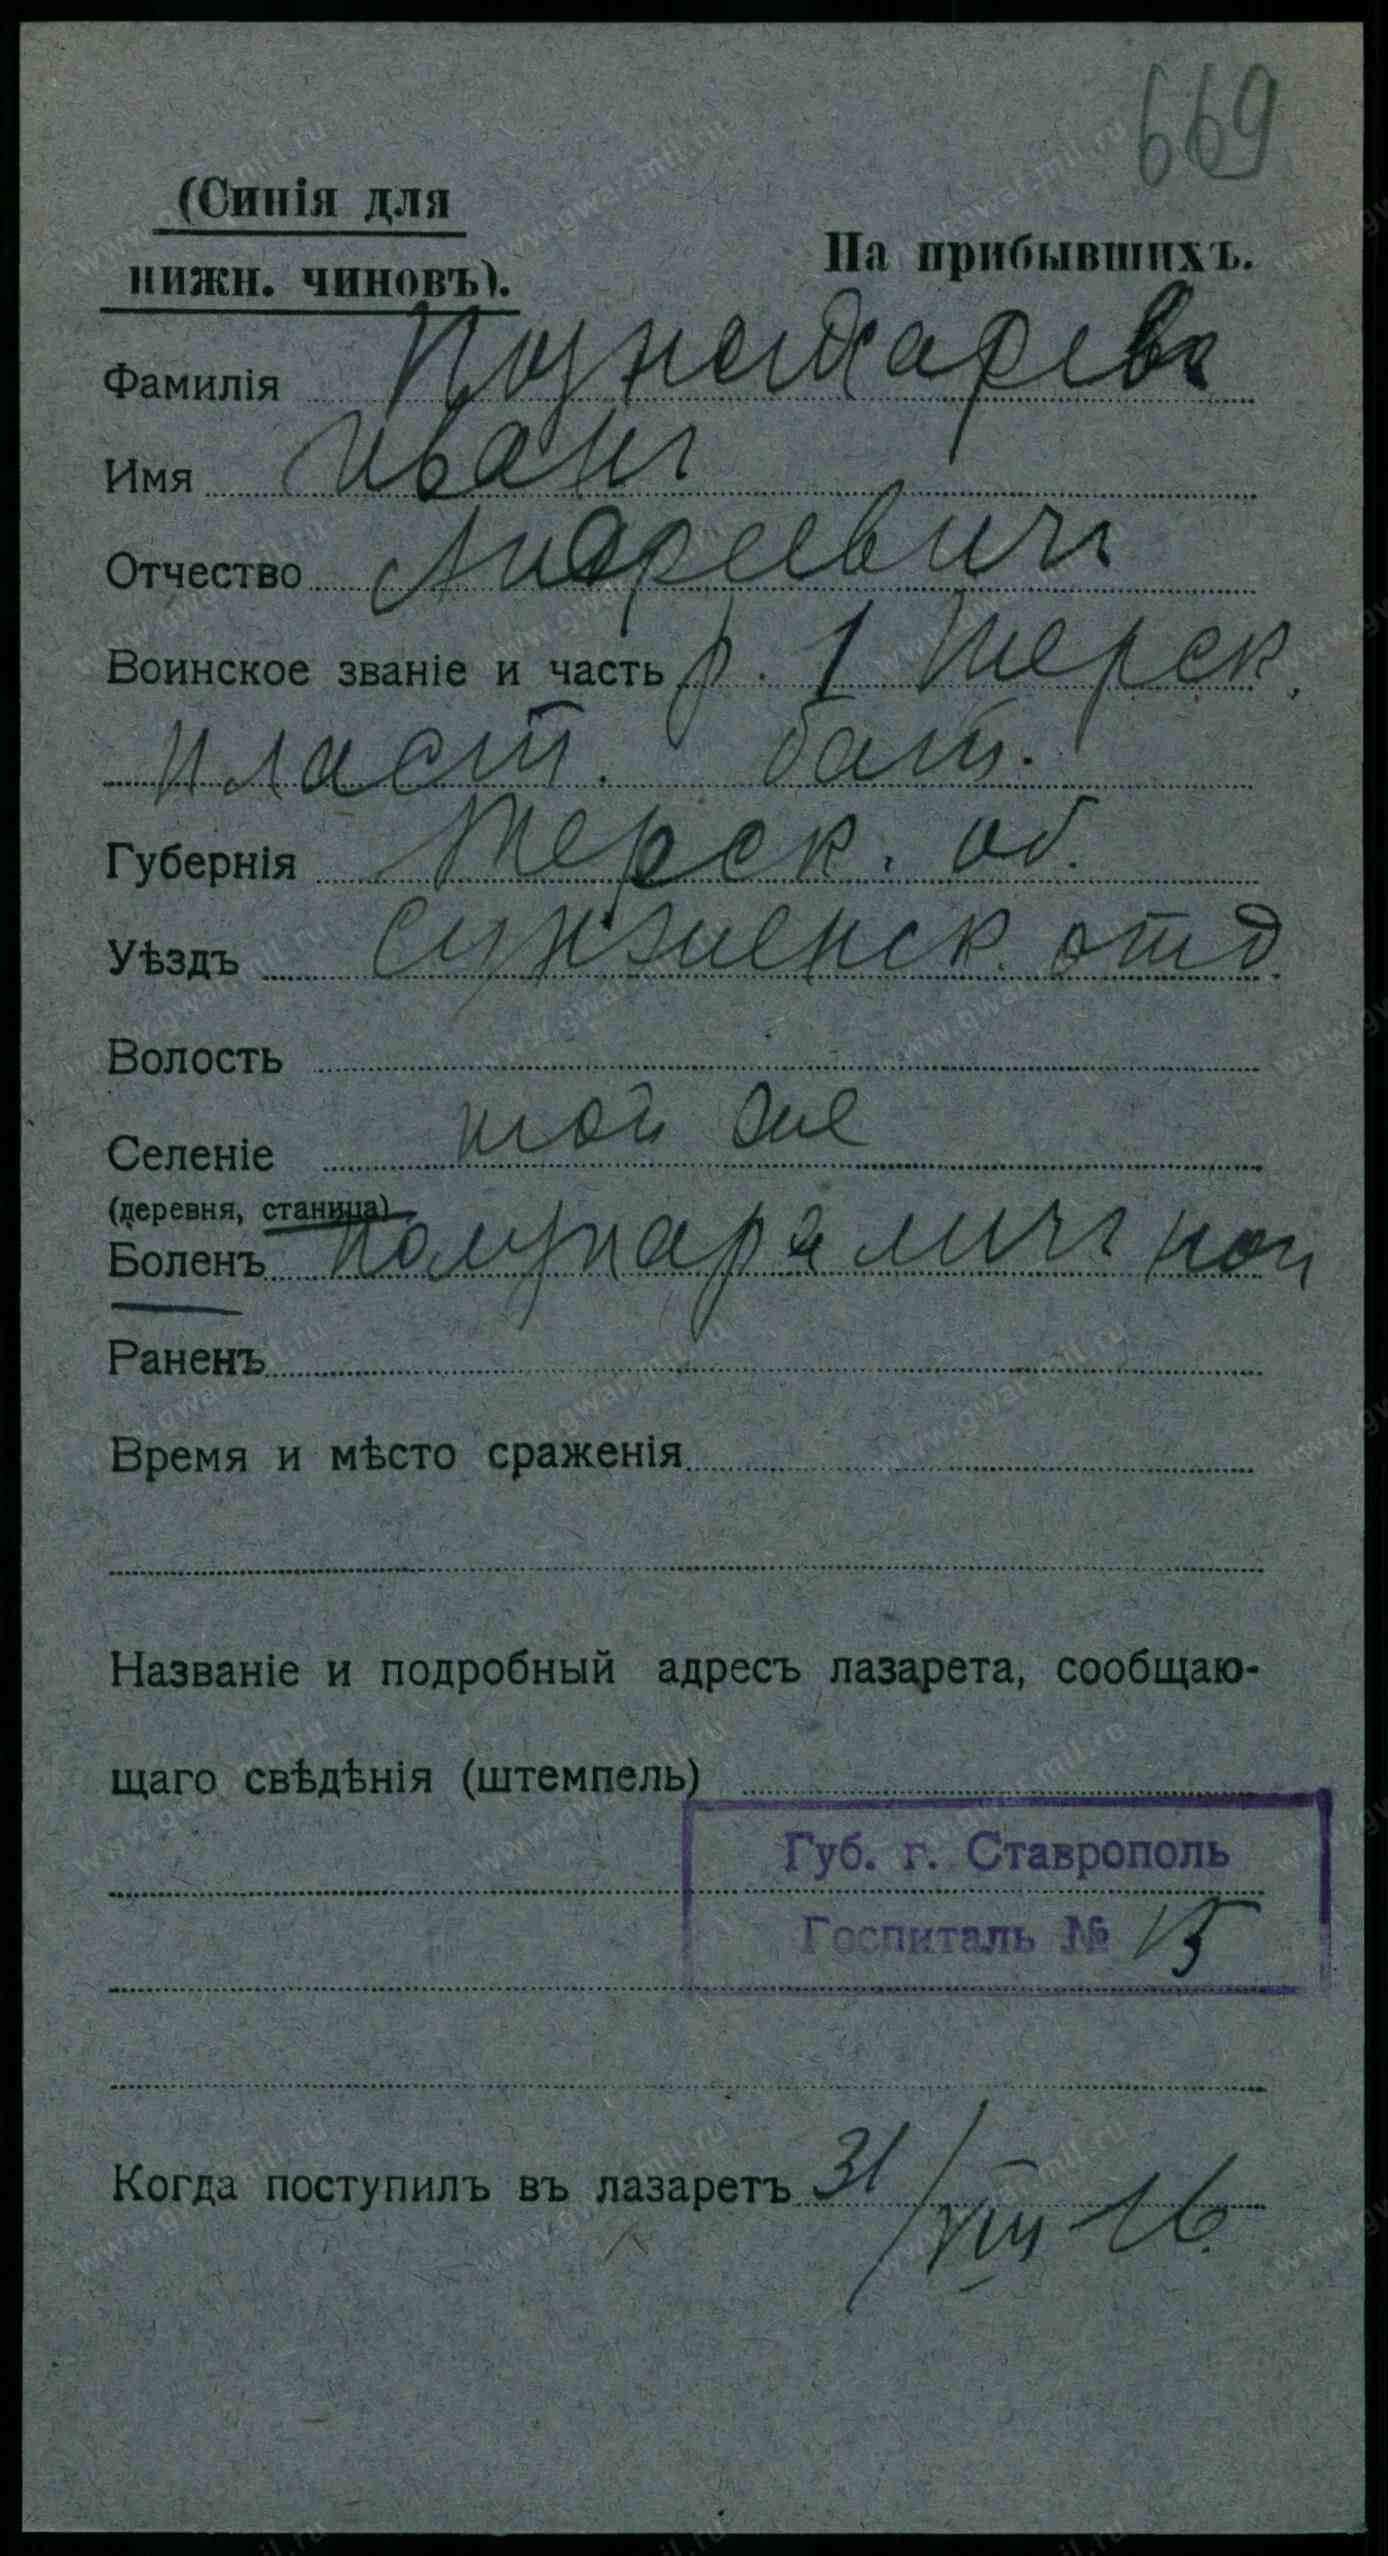 669
(Синія для
нижн. чиновъ).
На прибывшихъ.
Фамилія
Имя Иванъ
Отчество Андреевичъ
Воинское званіе и часть р. 1 Терск.
пласт. бат.
Губернія Терск. об.
Уѣздъ Сунженск. отд.
Волость
Селеніе той же
(деревня, станица)
Боленъ
Раненъ
Время и мѣсто сраженія
Названіе и подробный адресъ лазарета, сообщаю-
щаго свѣдѣнія (штемпель)
Губ. г. Ставрополь
Госпиталь №
Когда поступилъ въ лазаретъ 31/VIII-16.